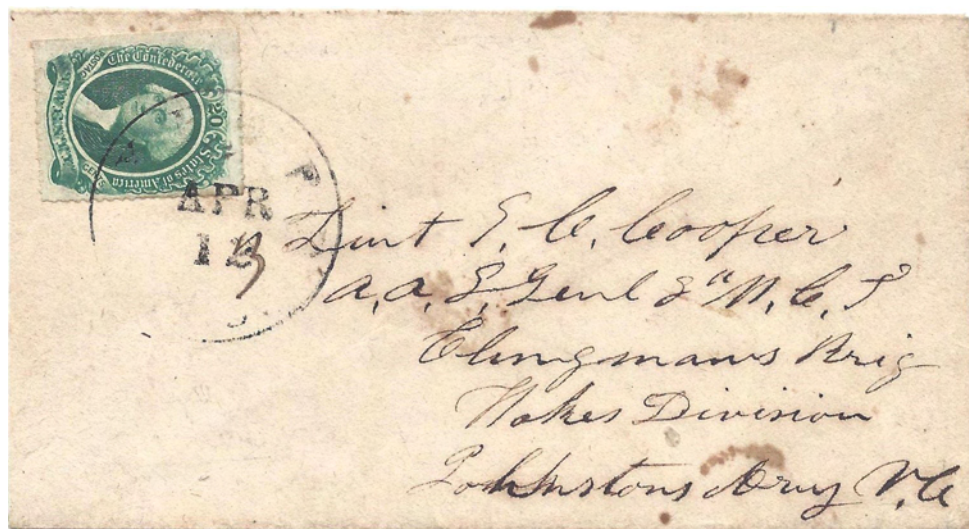 The Confederate
States of America
20
APR
12
3
Lieut E. C. Cooper
A, A, E, Genl 8" N. C. T
Clingmans Brig
Hokes Division
Johnstons Army N. C